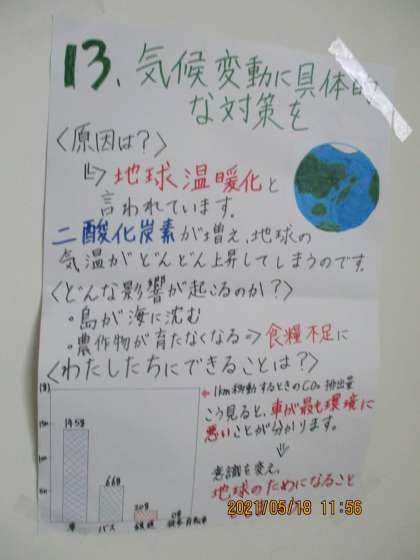 13、気候変動に具体的
な対策を
〈原因は？〉
地球温暖化と
言われています。
二酸化炭素が増え、地球の
気温がどんどん上昇してしまうのです。
〈どんな影響が起こるのか？〉
・島が海に沈む
・農作物が育たなくなる⇒食糧不足に
〈わたしたちにできることは？〉
(g)
150
100
50
145g
66g
20g
0g
車
バス
鉄道
自転車
←1km移動するときのCO₂排出量
こう見ると、車が最も環境に
悪いことが分かります。
⇓
意識を変え、
地球のためになること
2021/05/18 11:56